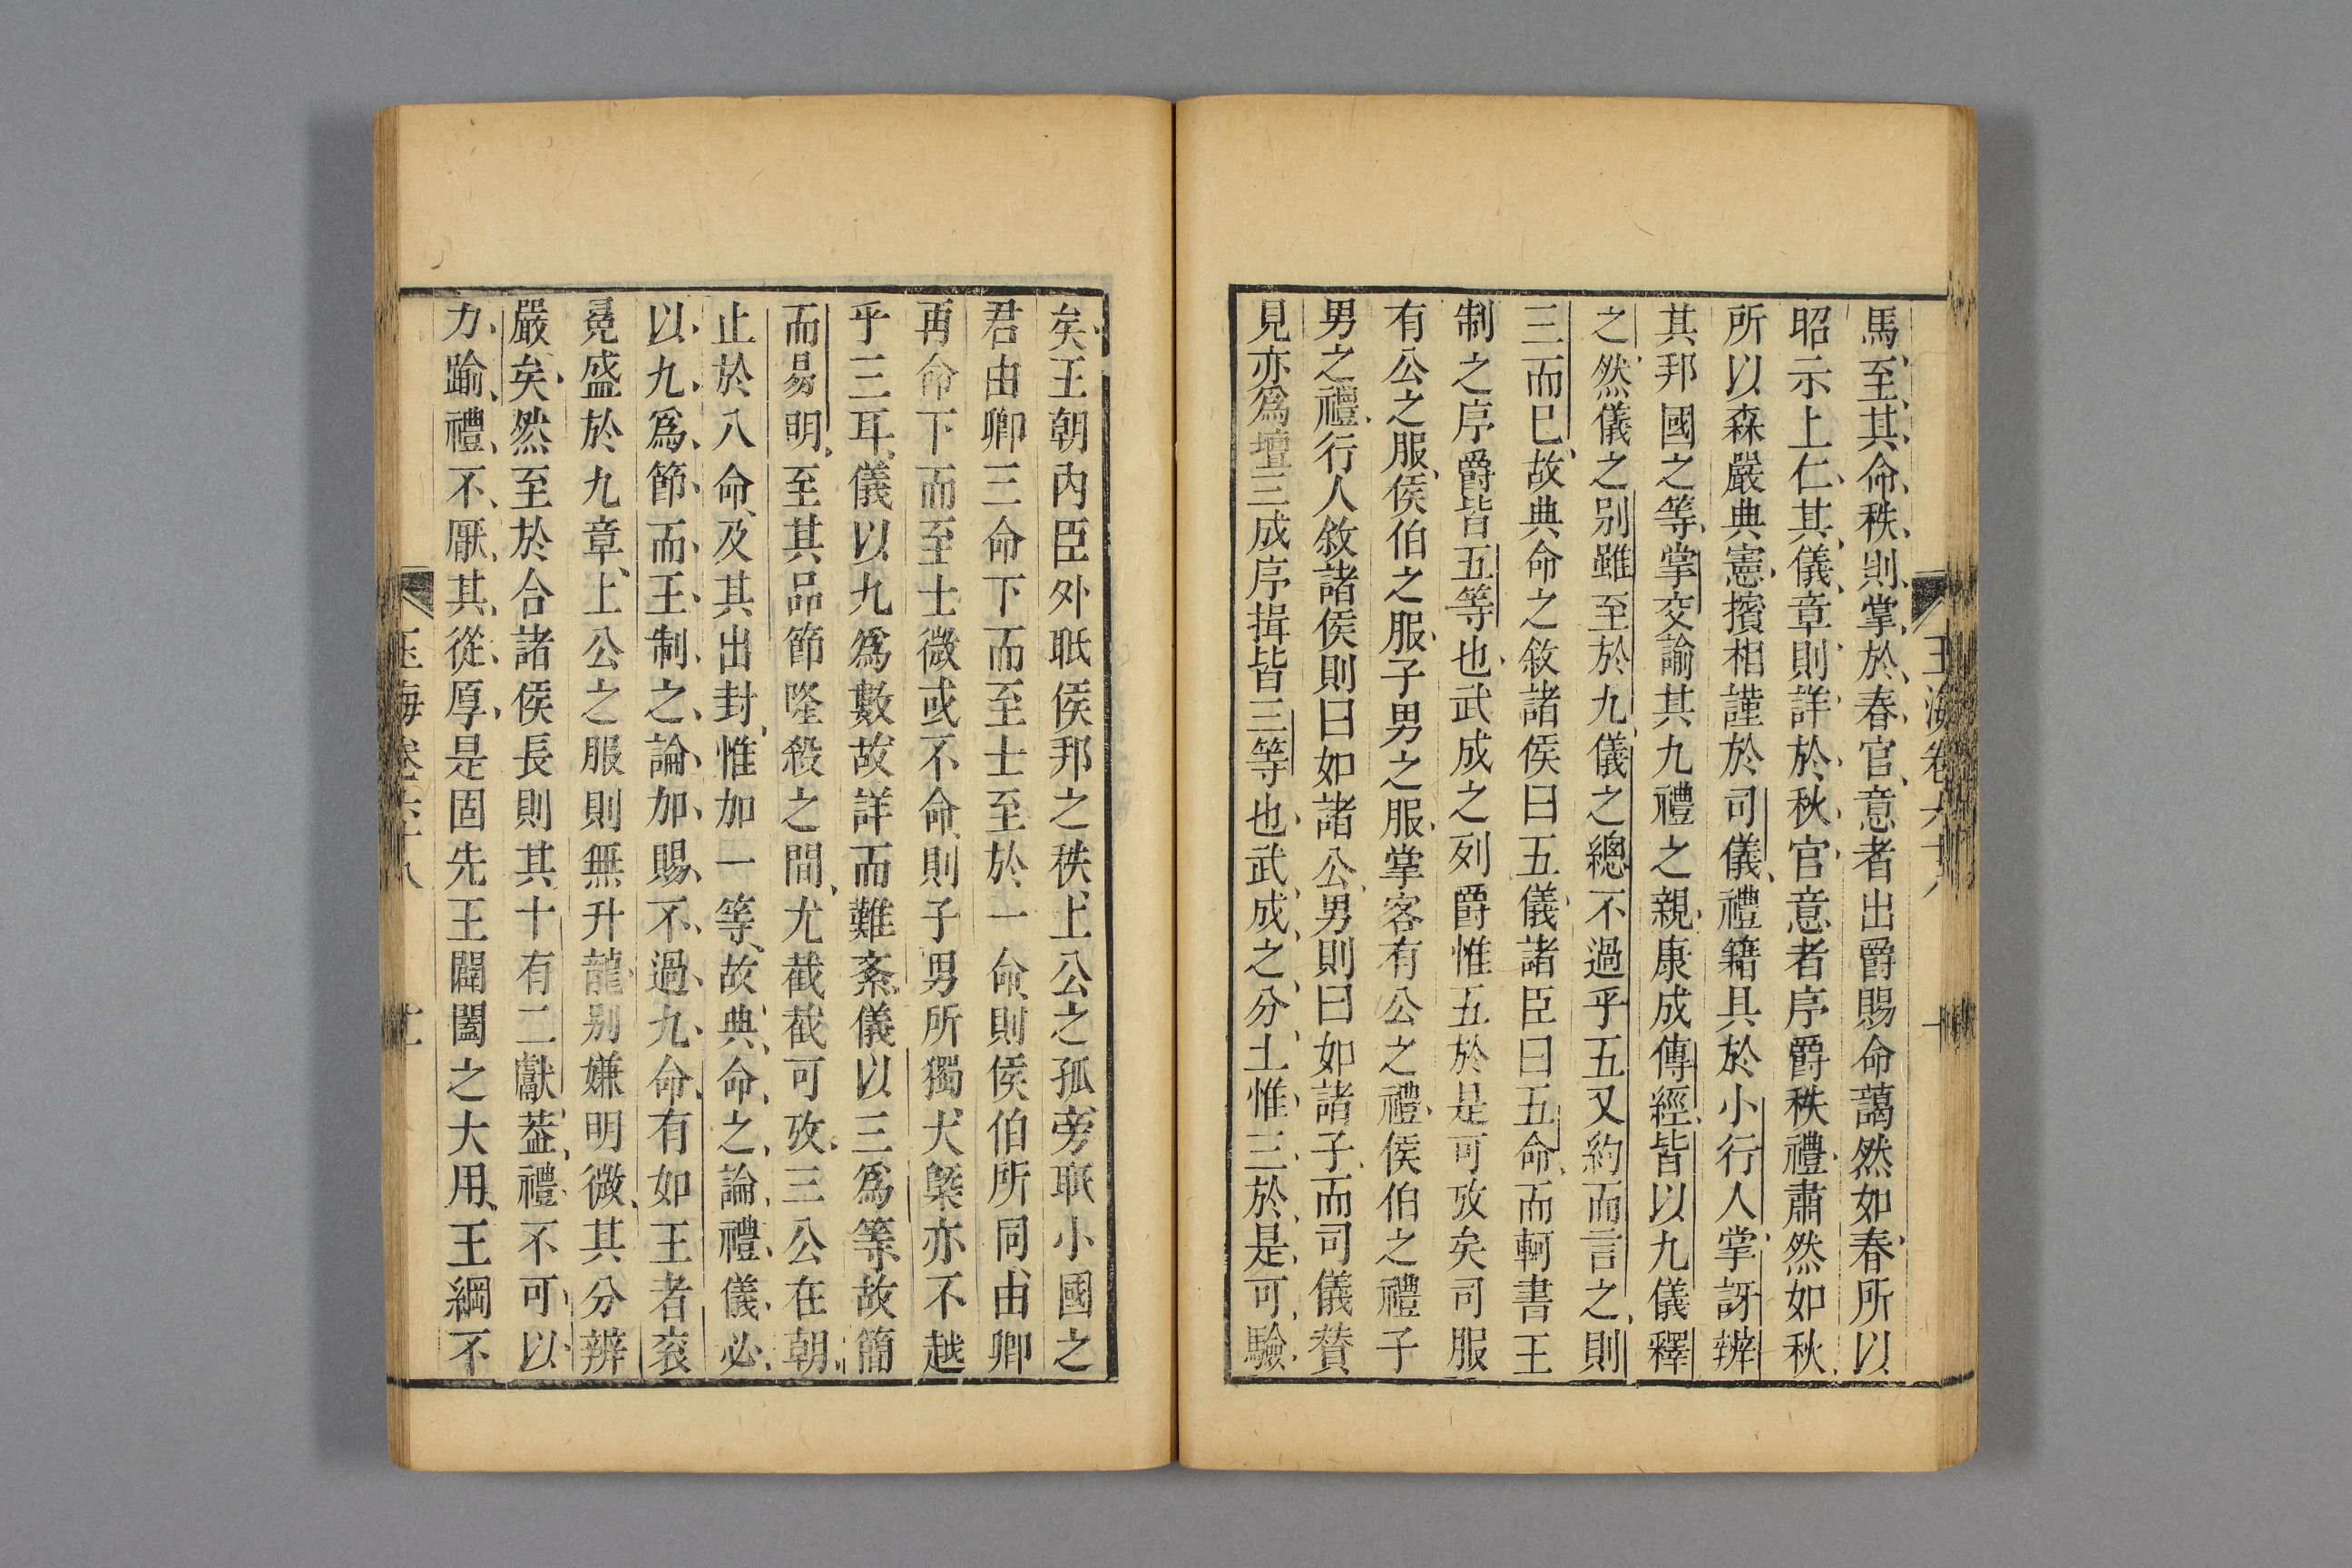 馬至其命秩則掌於春官意者出爵賜命藹然如春所以
昭示上仁其儀章則詳於秋官意者序爵秩禮肅然如秋
所以森嚴典憲擯相謹於司儀禮籍具於小行人掌訝辨
其邦國之等掌交諭其九禮之親康成傳經皆以九儀釋
之然儀之别雖至於九儀之總不過乎五又約而言之則
三而巳故典命之敘諸侯曰五儀諸臣曰五命而軻書王
制之序爵皆五等也武成之列爵惟五於是可攷矣司服
有公之服侯伯之服子男之服掌客有公之禮侯伯之禮子
男之禮行人敘諸侯則曰如諸公男則曰如諸子而司儀賛
見亦爲壇三成序揖皆三等也武成之分土惟三於是可驗
矣王朝內臣外眡侯邦之秩上公之孤旁眡小國之
君由卿三命下而至士至於一命則侯伯所同由卿
再命下而至士微或不命則子男所獨大槩亦不越
乎三耳儀以九爲數故詳而難紊儀以三爲等故簡
而易明至其品節隆殺之間尤截截可攷三公在朝
止於八命及其出封惟加一等故典命之論禮儀必
以九爲節而王制之論加賜不過九命有如王者衮
冕盛於九章上公之服則無升龍别嫌明微其分辨
嚴矣然至於合諸侯長則其十有二獻葢禮不可以
力踰禮不厭其從厚是固先王闢闔之大用王綱不
玉海卷六十八